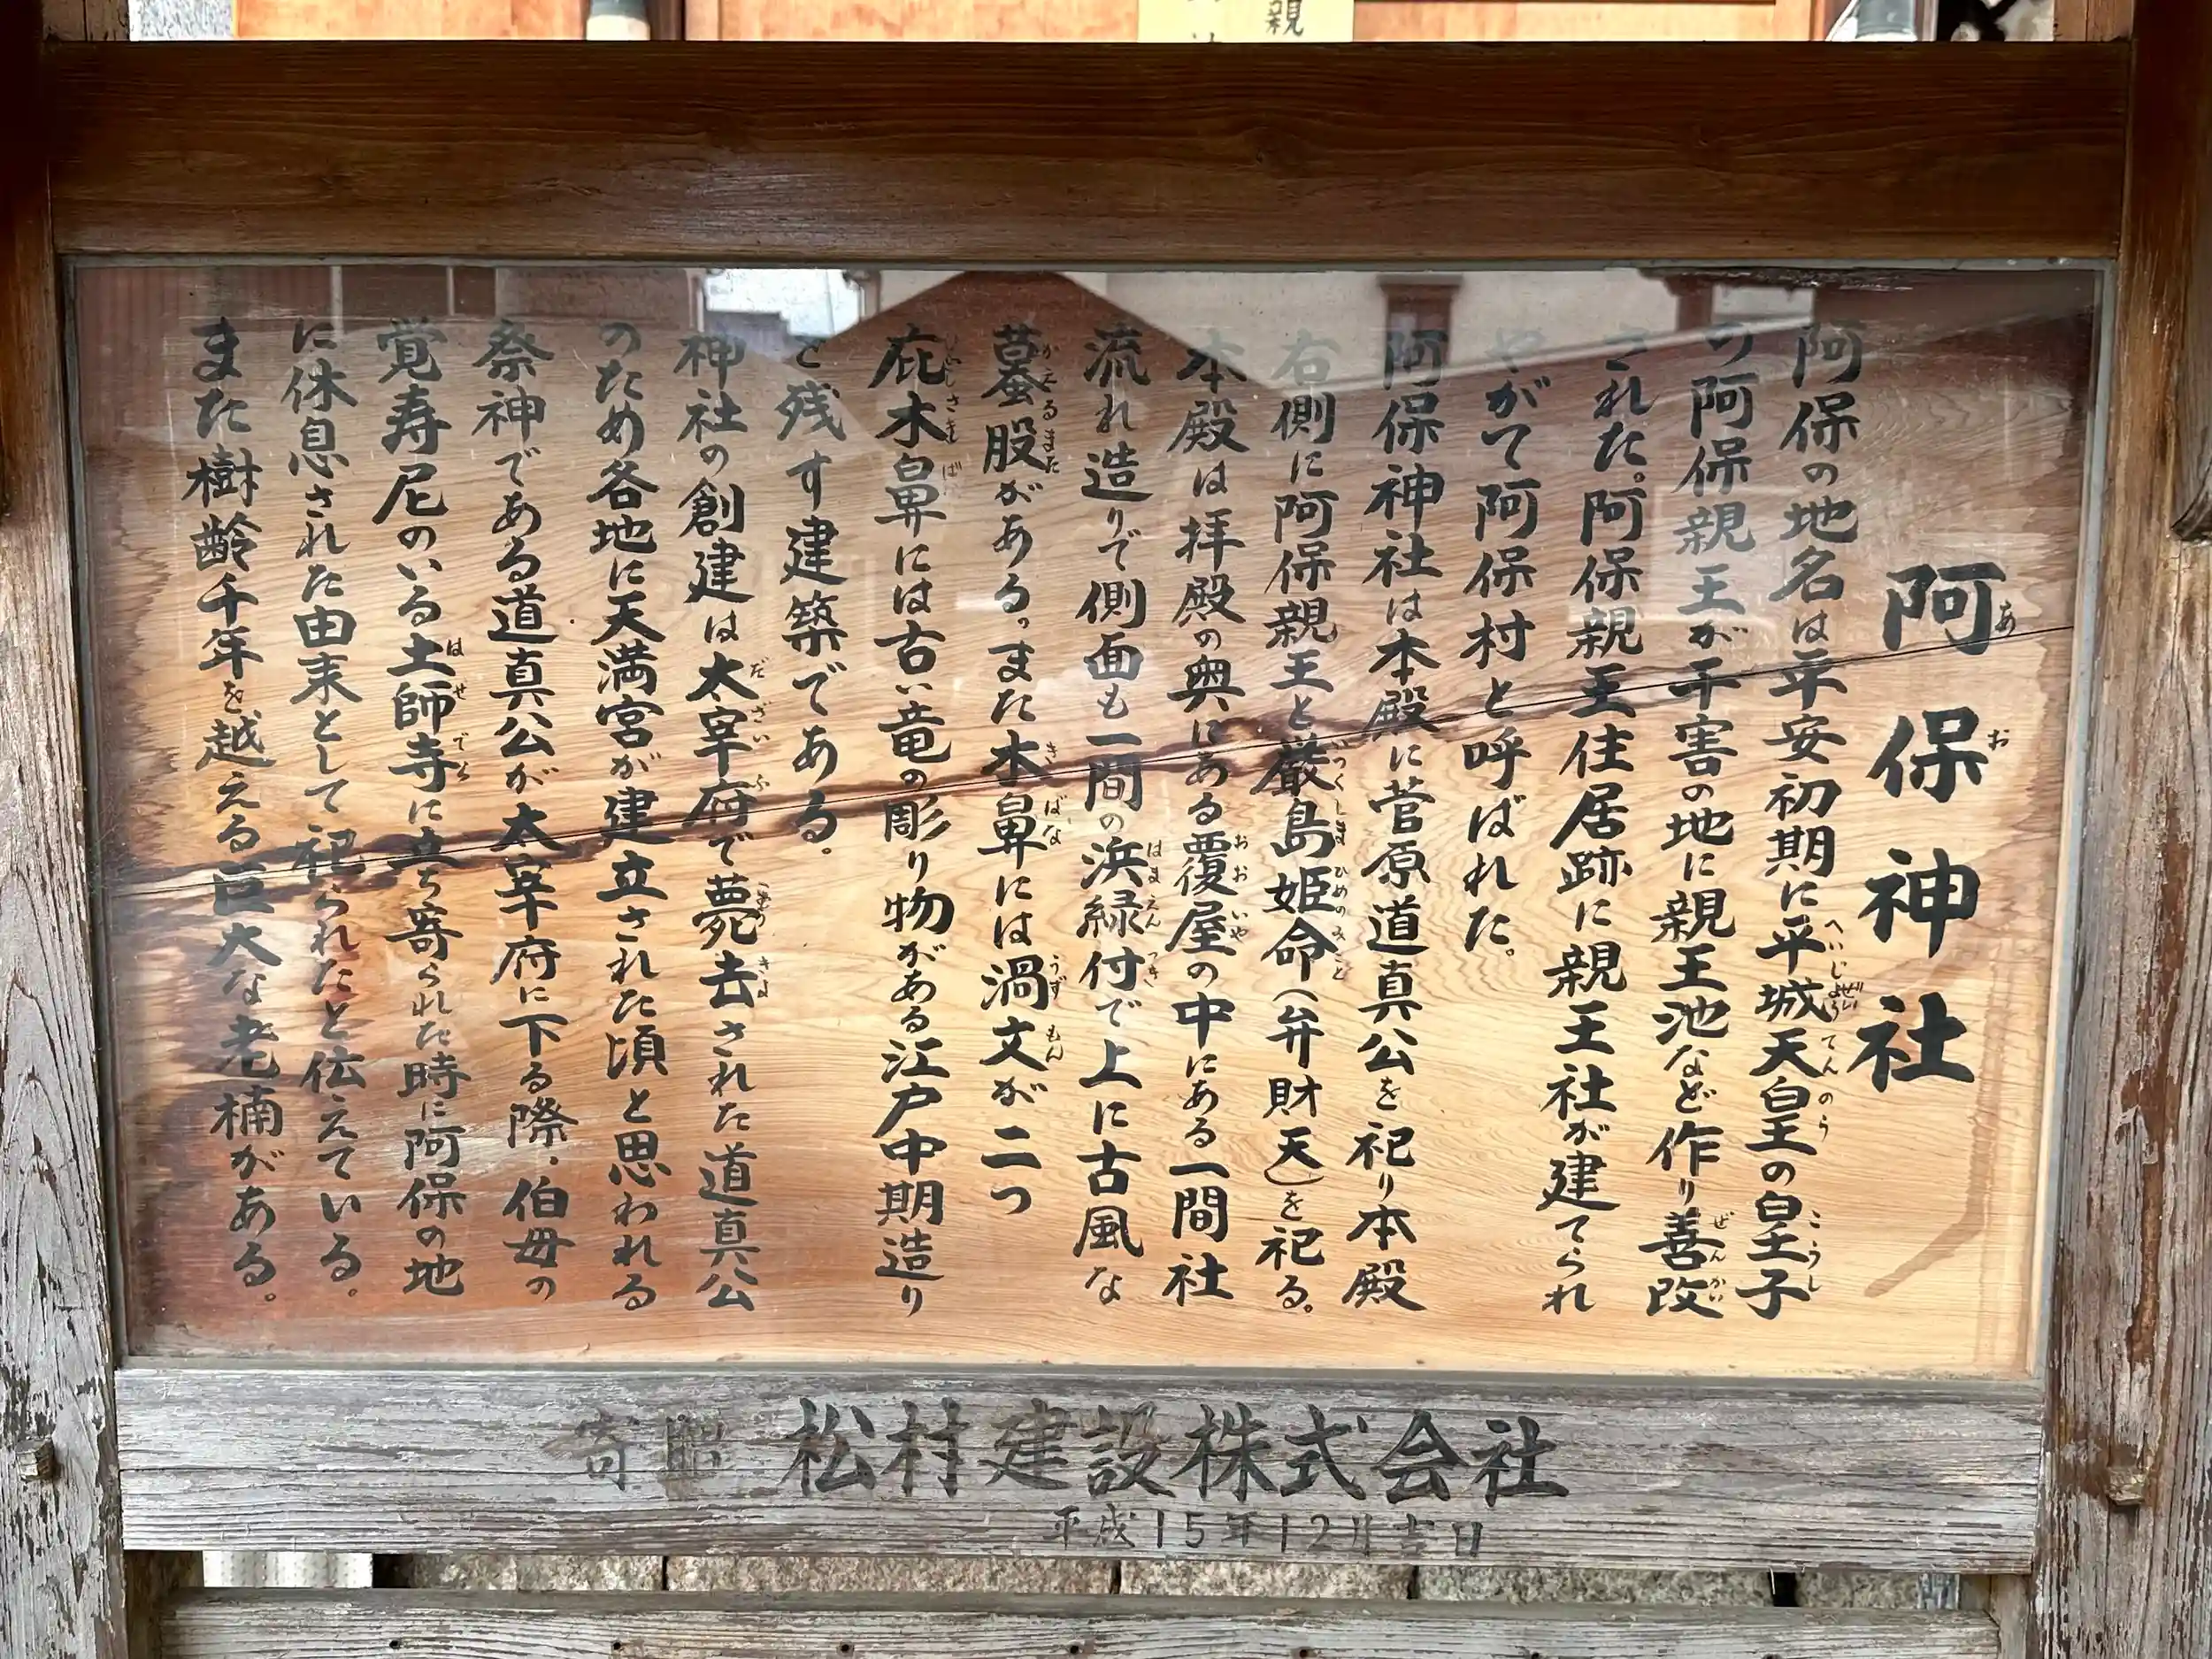 阿保神社
阿保の地名は平安初期に平城天皇の皇子
の阿保親王が干害の地に親王池など作り善改
された。阿保親王住居跡に親王社が建てられ
やがて阿保村と呼ばれた。
阿保神社は本殿に菅原道真公を祀り本殿
右側に阿保親王と厳島姫命(弁財天)を祀る。
本殿は拝殿の奥にある覆屋の中にある一間社
流れ造りで側面も一間の浜縁付で上に古風な
蟇股がある。また木鼻には渦文が二つ
庇木鼻には古い竜の彫り物がある江戸中期造り
を残す建築である。
神社の創建は太宰府で薨去された道真公
のため各地に天満宮が建立された頃と思われる
祭神である道真公が太宰府に下る際、伯母の
覚寿尼のいる土師寺に立ち寄られた時に阿保の地
に休息された由来として祀られたと伝えている。
また樹齢千年を越える巨大な老楠がある。
寄贈 松村建設株式会社
平成15年12月吉日